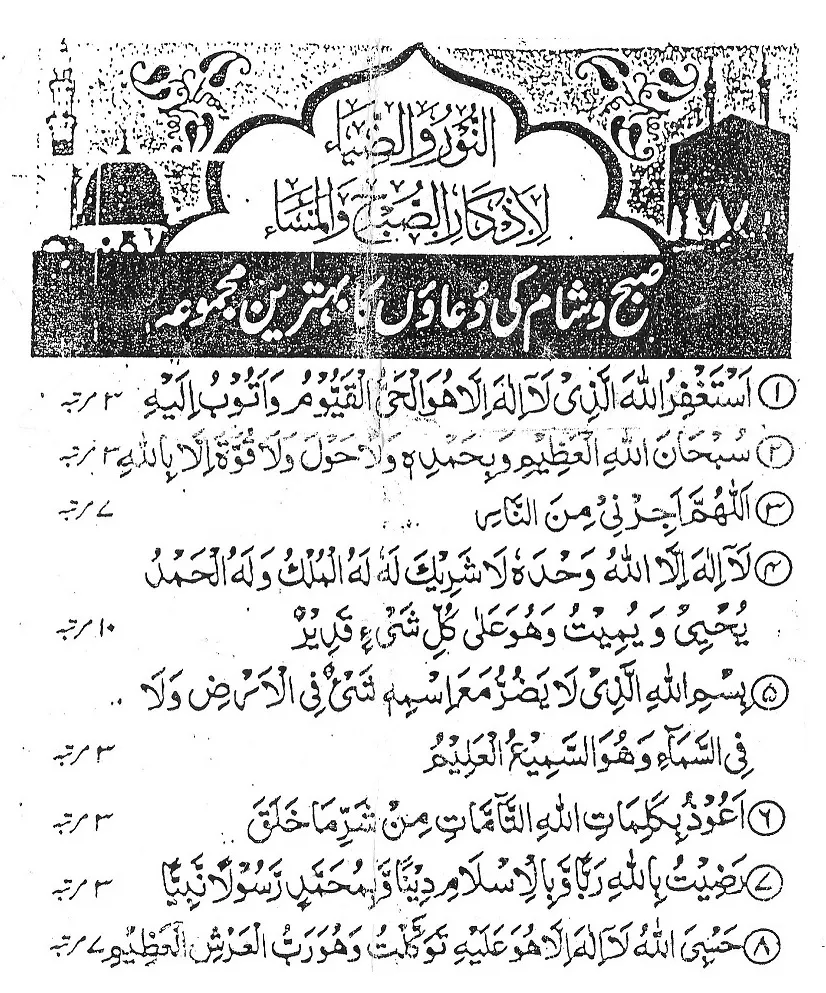 النُّوْرُ وَالضِّيَاء
لِاَذْكَارِ الصُّبْحِ وَالْمَسَاء
صبح و شام کی دُعاؤں کا بہترین مجموعہ
① اَسْتَغْفِرُ اللهَ الَّذِیْ لَآ اِلٰهَ اِلَّا هُوَ الْحَیُّ الْقَیُّوْمُ وَاَتُوْبُ اِلَیْهِ ۳ مرتبہ
② سُبْحَانَ اللهِ الْعَظِیْمِ وَبِحَمْدِهٖ وَلَا حَوْلَ وَلَا قُوَّةَ اِلَّا بِاللهِ ۳ مرتبہ
③ اَللّٰهُمَّ اَجِرْنِیْ مِنَ النَّارِ ۷ مرتبہ
④ لَآ اِلٰهَ اِلَّا اللهُ وَحْدَهٗ لَا شَرِیْكَ لَهٗ لَهُ الْمُلْكُ وَلَهُ الْحَمْدُ
یُحْیِیْ وَ یُمِیْتُ وَهُوَ عَلٰی كُلِّ شَیْءٍ قَدِیْرٌ ۱۰ مرتبہ
⑤ بِسْمِ اللهِ الَّذِیْ لَا یَضُرُّ مَعَ اسْمِهٖ شَیْءٌ فِی الْاَرْضِ وَلَا
فِی السَّمَآءِ وَهُوَ السَّمِیْعُ الْعَلِیْمُ ۳ مرتبہ
⑥ اَعُوْذُ بِكَلِمَاتِ اللهِ التَّآمَّاتِ مِنْ شَرِّ مَا خَلَقَ ۳ مرتبہ
⑦ رَضِیْتُ بِاللهِ رَبًّا وَّبِالْاِسْلَامِ دِیْنًا وَّبِمُحَمَّدٍ رَّسُوْلًا نَّبِیًّا ۳ مرتبہ
⑧ حَسْبِیَ اللهُ لَآ اِلٰهَ اِلَّا هُوَ عَلَیْهِ تَوَكَّلْتُ وَهُوَ رَبُّ الْعَرْشِ الْعَظِیْمِ ۷ مرتبہ